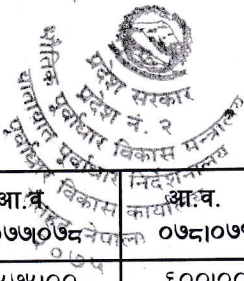 प्रदेश सरकार
प्रदेश नं. २
भौतिक पूर्वाधार विकास मन्त्रालय
यातायात पूर्वाधार निर्देशनालय
पूर्वाधार विकास कार्यालय
नेपाल
२०७५
आ.व. आ.व.
०७७।०७८ ०७८।०७९